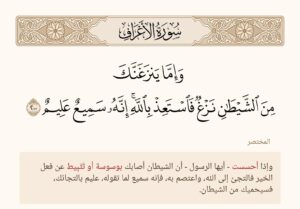 سُورَةُ الأَعْرَافِ
وَإِمَّا يَنزَغَنَّكَ
مِنَ الشَّيْطَٰنِ نَزْغٌ فَاسْتَعِذْ بِاللَّهِ ۚ إِنَّهُ سَمِيعٌ عَلِيمٌ ٢٠٠
المختصر
وإذا أحسست - أيها الرسول - أن الشيطان أصابك بوسوسة أو تثبيط عن فعل
الخير فالتجئ إلى الله، واعتصم به، فإنه سميع لما تقوله، عليم بالتجائك،
فسيحميك من الشيطان.